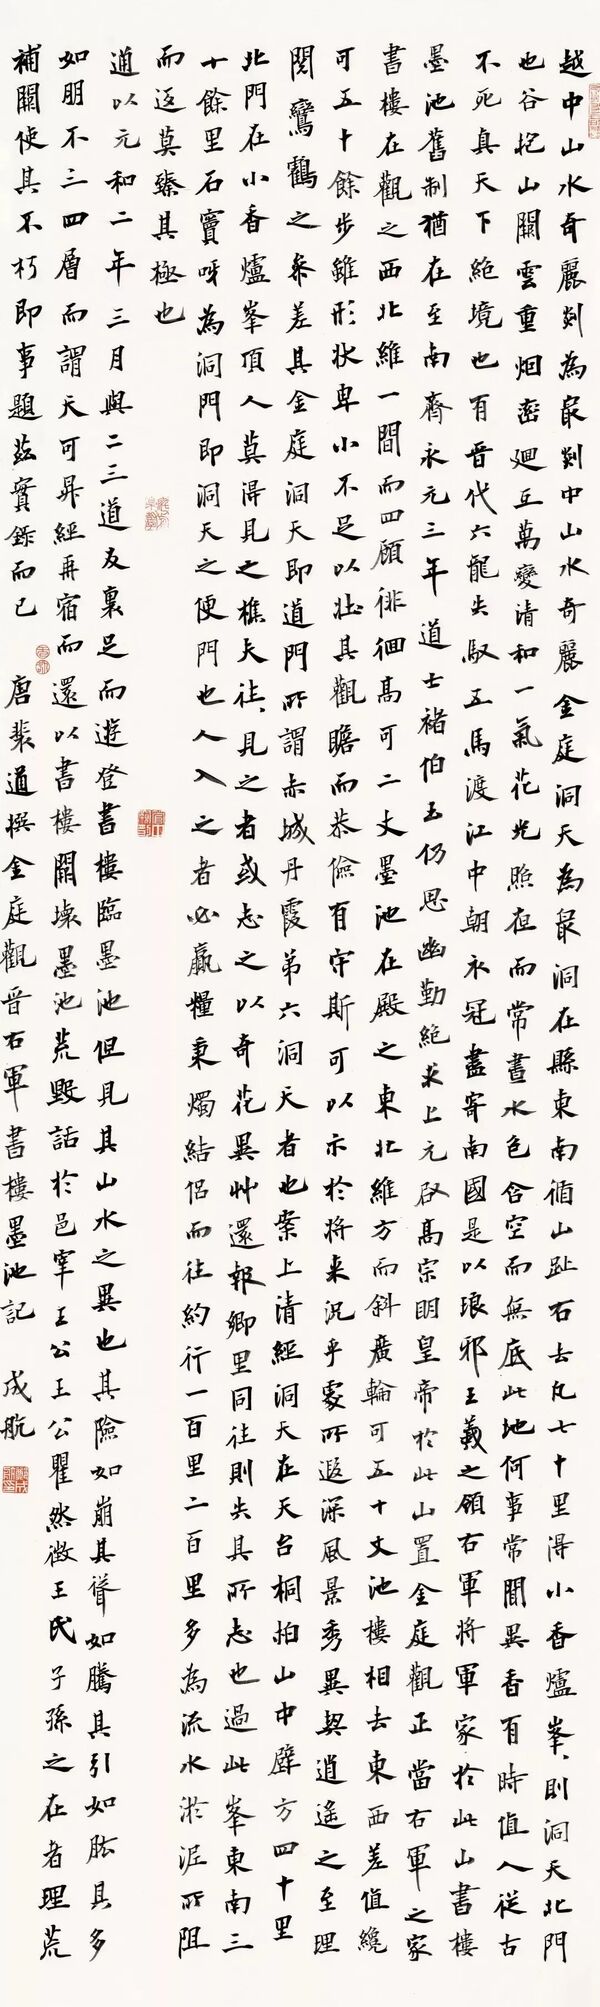 越中山水奇麗剡為最剡中山水奇麗金庭洞天為最洞在縣東南循山趾右去凡七十里得小香爐峯則洞天北門
也谷抱山闕雲重烟密廻互萬變清和一氣花光照夜而常晝水色含空而無底此地何事常聞異香有時值人從古
不死真天下絶境也有晉代六龍失馭五馬渡江中朝衣冠盡寄南國是以琅邪王羲之領右軍將軍家於此山書樓
墨池舊制猶在至南齊永元三年道士褚伯玉仍思幽勤絶求上元啟高宗明皇帝於此山置金庭觀正當右軍之家
書樓在觀之西北維一間而四顧徘徊高可二丈墨池在殿之東北維方而斜廣輪可五十丈池樓相去東西差值纔
可五十餘步雖形狀卑小不足以壯其觀瞻而恭儉有守斯可以示於將来況乎處所遐深風景秀異契逍遙之至理
閱鸞鶴之參差其金庭洞天即道門所謂赤城丹霞第六洞天者也案上清經洞天在天台桐柏山中辟方四十里
北門在小香爐峯頂人莫得見之樵夫往往見之者或志之以奇花異艸還報鄉里同往則失其所志也過此峯東南三
十餘里石竇呀為洞門即洞天之便門也人入之者必羸糧秉燭結侶而往約行一百里二百里多為流水淤泥所阻
而返莫臻其極也
道以元和二年三月與二三道友裹足而遊登書樓臨墨池但見其山水之異也其險如崩其聳如騰其引如肱其多
如朋不三四層而謂天可昇經再宿而還以書樓闕壞墨池荒毀話於邑宰王公王公瞿然徵王氏子孫之在者理荒
補闕使其不朽即事題茲實錄而已 唐裴通撰金庭觀晉右軍書樓墨池記 成航